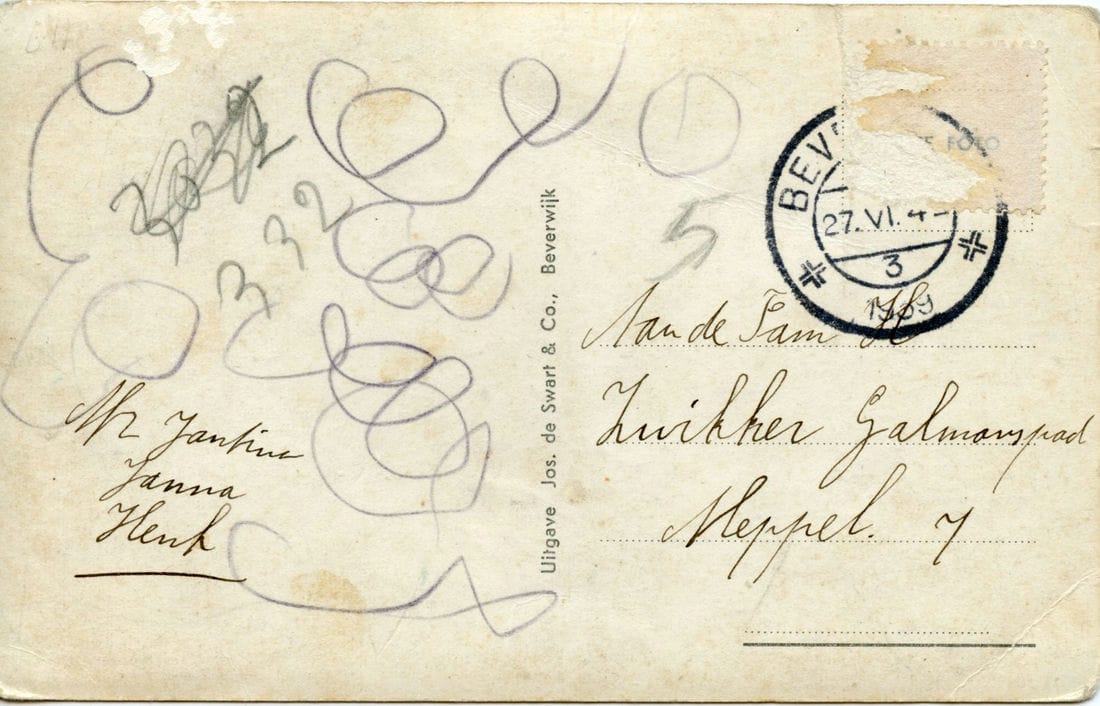 332
5
Jantina
Janna
Henk
Uitgave Jos. de Swart & Co., Beverwijk
BEV
27. VI. 4
3
FOTO
Aan de Fam H
Zwikker Galmanspad
Meppel. 7